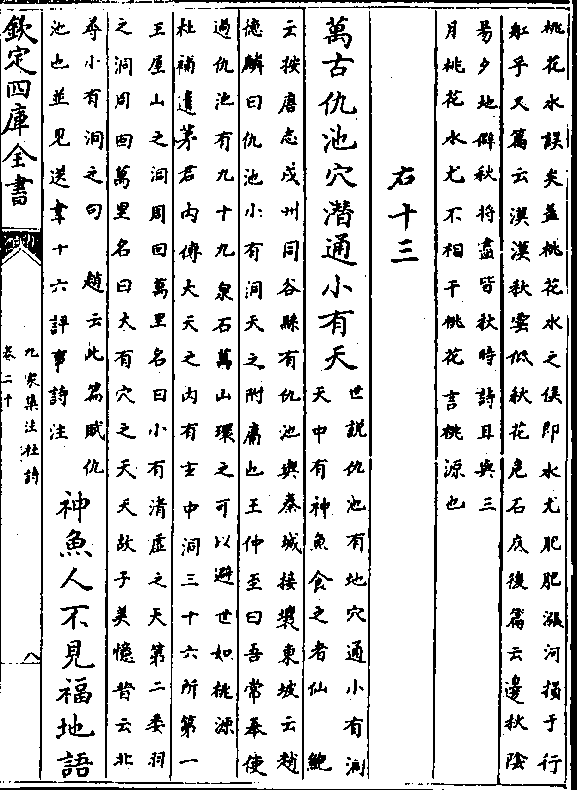 桃花水誤矣蓋桃花水之候即水尤肥肥漲河損于行
船乎又篇云漠漠秋雲低秋花危石底後篇云邊秋陰
易夕地僻秋將盡皆秋時詩且與三
月桃花水尤不相干桃花言桃源也
右十三
萬古仇池穴潛通小有天
世說仇池有地穴通小有洞
天中有神魚食之者仙 鮑
云按唐志成州同谷縣有仇池與秦城接壤東坡云趙
德麟曰仇池小有洞天之附庸也王仲至曰吾常奉使
過仇池有九十九泉石萬山環之可以避世如桃源
杜補遺茅君內傳大天之內有玄中洞三十六所第一
王屋山之洞周回萬里名曰小有清虛之天第二委羽
之洞周回萬里名曰大有穴之天天故子美憶昔云北
尋小有洞之句 趙云此篇賦仇
池也並見送韋十六評事詩注
神魚人不見福地語
欽定四庫全書
九家集注杜詩
卷二十
八